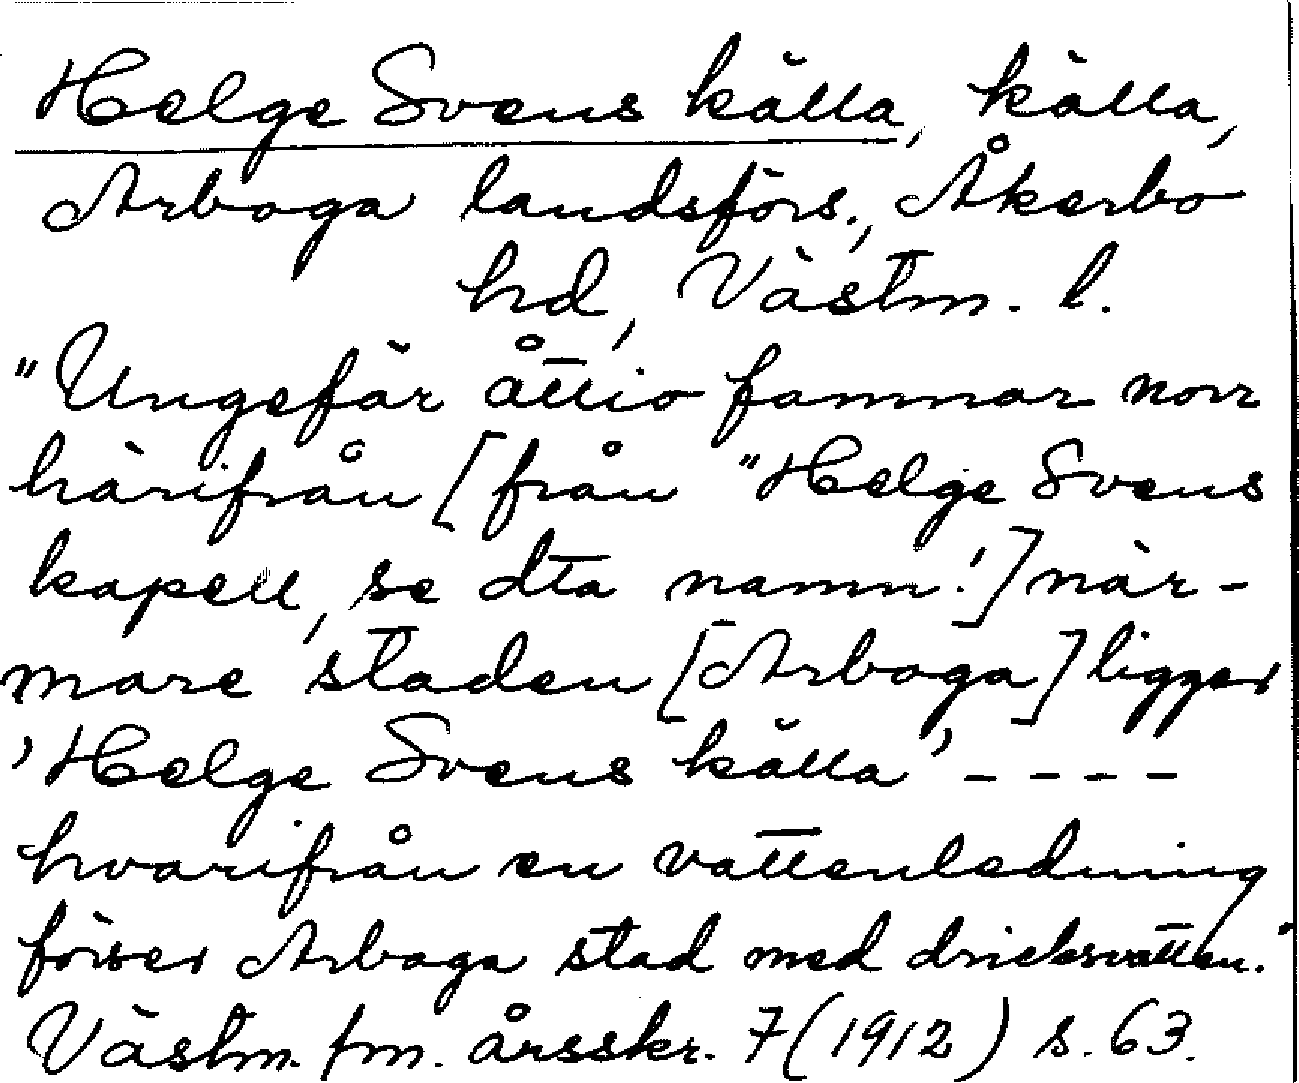 Helge Svens källa, källa,
Arboga landsförs., Åkerbo
hd, Västm. l.
"Ungefär åttio famnar norr
härifrån [från "Helge Svens
kapell, se dta namn!] när-
mare staden [Arboga] ligger
'Helge Svens källa' - - - -
hvarifrån en vattenledning
förser Arboga stad med dricksvatten."
Västm. fm. årsskr. 7 (1912) s. 63.